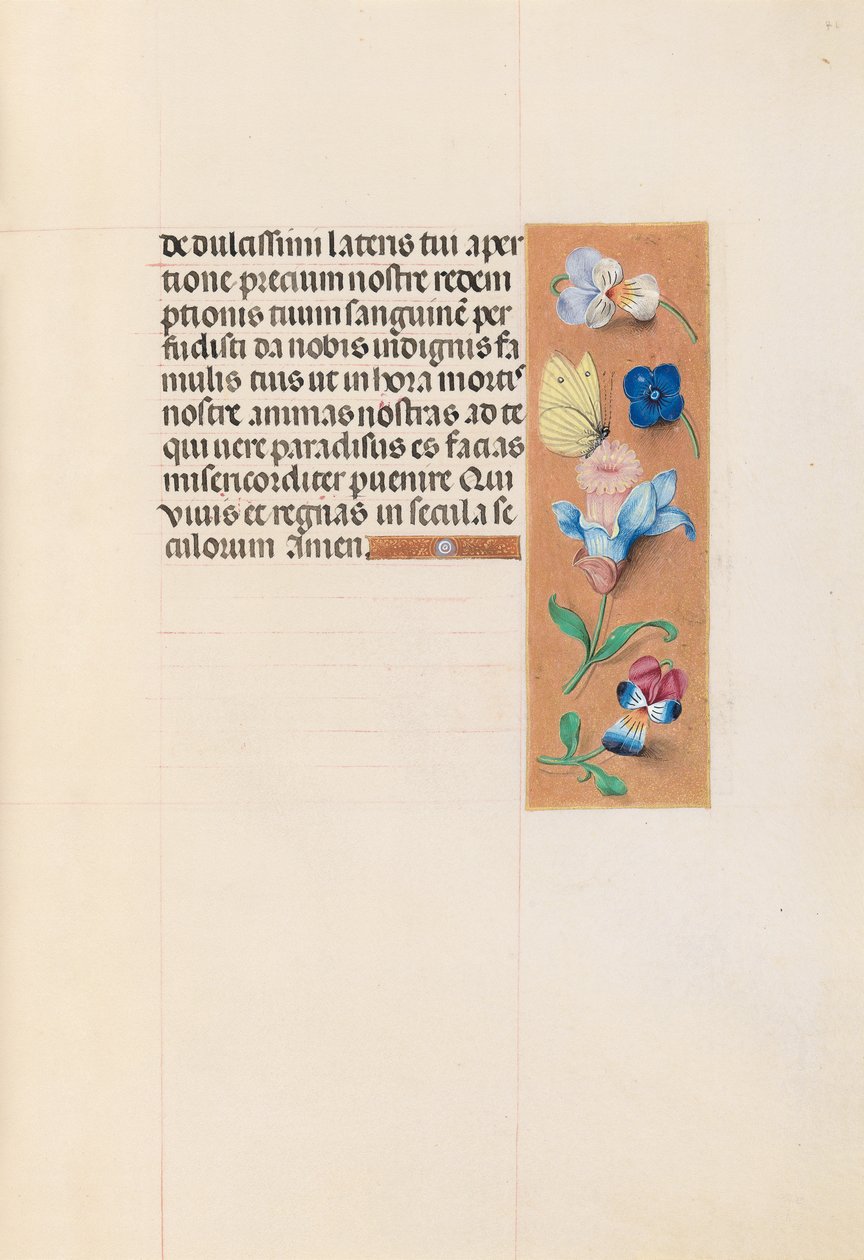 de dulcissimi lateris tui aper
tione precium nostre redem
ptionis tuum sanguinẽ per
fudisti da nobis indignis fa
mulis tuis ut in hora mortꝰ
nostre animas nostras ad te
qui uere paradisus es facias
misericorditer ꝑuenire Qui
viuis et regnas in secula se
culorum Amen.